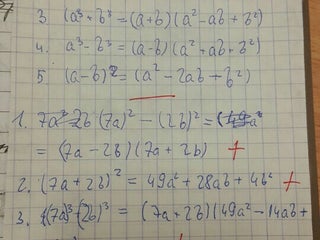 3. (a³+b³=(a+b)(a²-ab+b²)
4. a³-b³=(a-b)(a²+ab+b²)
5. (a-b)²=(a²-2ab+b²)
1. (7a)²-(2b)²=
=(7a-2b)(7a+2b) +
2. (7a+2b)²=49a²+28ab+4b² +
3. (7a)³+(2b)³=(7a+2b)(49a²-14ab+